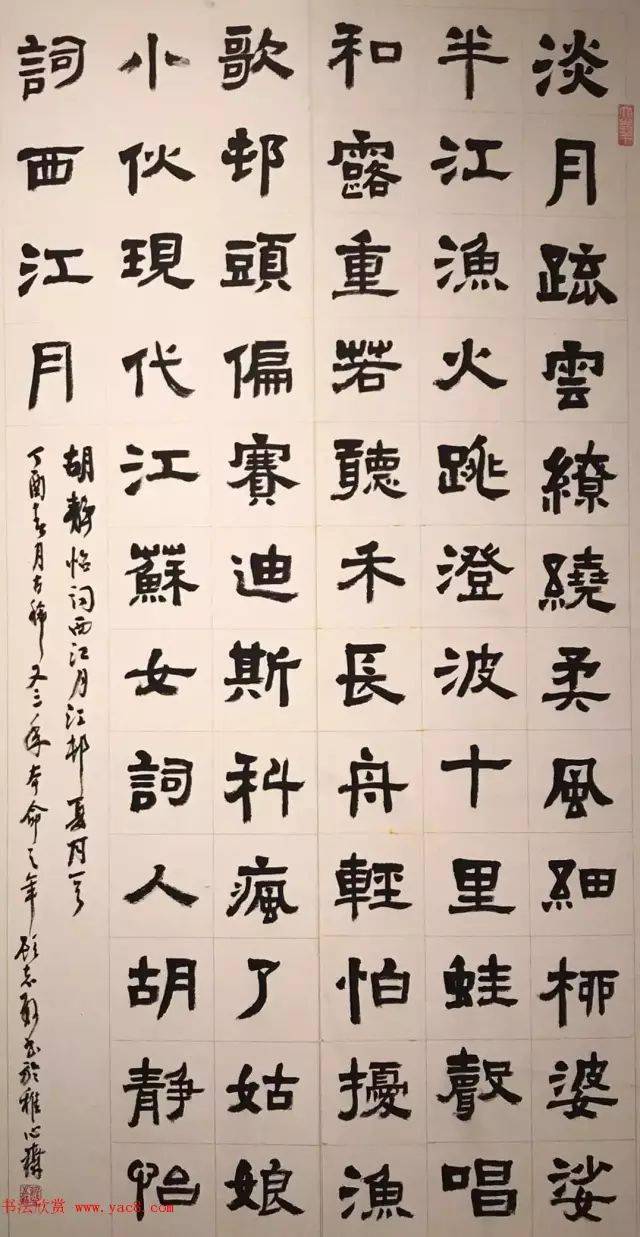 淡月疏雲繚繞柔風細柳婆娑
半江漁火跳澄波十里蛙聲唱
和露重若聽禾長舟輕怕擾漁
歌邨頭偏賽迪斯科瘋了姑娘
小伙現代江蘇女詞人胡靜怡
詞西江月
胡靜怡詞西江月江邨夏
丁酉春月古稀又三年本命之年顾志新书於雅心齋
书法欣赏 www.yac8.com